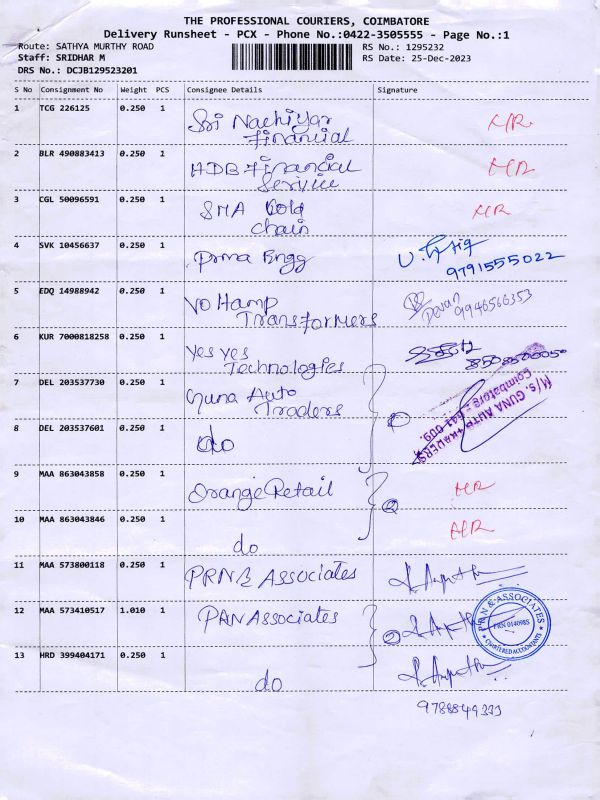 THE PROFESSIONAL COURIERS, COIMBATORE
Delivery Runsheet - PCX - Phone No.:0422-3505555 - Page No.:1
Route: SATHYA MURTHY ROAD RS No.: 1295232
Staff: SRIDHAR M RS Date: 25-Dec-2023
DRS No.: DCJB129523201
S No Consignment No Weight PCS Consignee Details Signature
1 TCG 226125 0.250 1 Sri Nachiyar Financial NR
2 BLR 490883413 0.250 1 HDB Financial Service NR
3 CGL 50096591 0.250 1 SMA Gold Chain NR
4 SVK 10456637 0.250 1 Prma Engg
9791555022
5 EDQ 14988942 0.250 1 Vo Hamp Transformers Devan 9946566353
6 KUR 7000818258 0.250 1 Yes yes Technologies
7 DEL 203537730 0.250 1 Guna Auto Traders
M/s. GUNA AUTO TRADERS
Coimbatore - 641 009.
8 DEL 203537601 0.250 1 do
9 MAA 863043858 0.250 1 Orange Retail NR
10 MAA 863043846 0.250 1 do NR
11 MAA 573800118 0.250 1 PRN & Associates
12 MAA 573410517 1.010 1 PAN Associates 2
PRN & ASSOCIATES
FRN 014098S
CHARTERED ACCOUNTANTS
13 HRD 399404171 0.250 1 do
9788849333